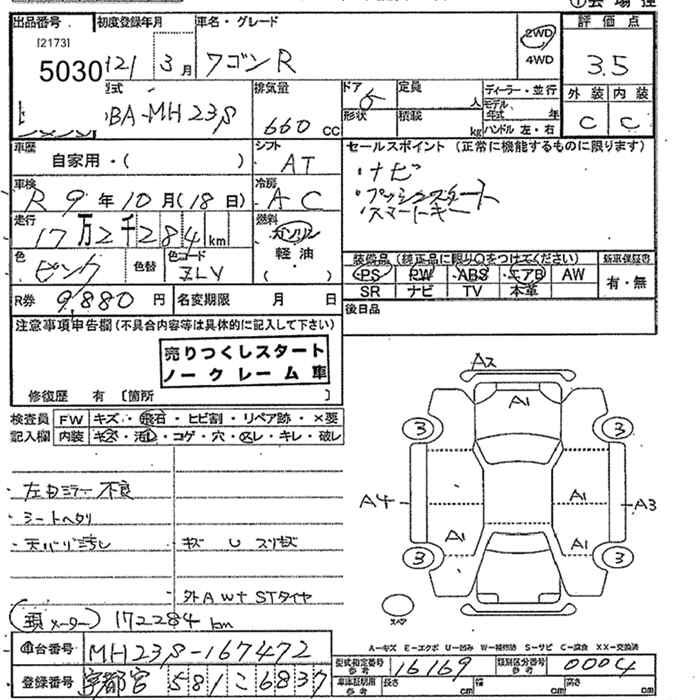 ①会場
出品番号 初度登録年月 車名・グレード 評価点
[2173]
5030 121 3月 ワゴンR 2WD 3.5
4WD
型式 排気量 ドア 定員 ディーラー・並行 外装 内装
BA-MH23S 660 CC 5 人 モデル年式 年 C C
形状 積載 kg ハンドル 左・右
車歴 シフト セールスポイント (正常に機能するものに限ります)
自家用・( ) AT ・ナビ
車検 冷房 ・プッシュスタート
R9年10月(18日) AC ・スマートキー
走行 燃料
17万2千284km ガソリン
軽油
( )
色 色替 色コード 装備品 (純正品に限り○をつけてください) 新車保証書
ピンク ZLV PS PW ABS エアB AW 有・無
SR ナビ TV 本革
R券 9,880円 名変期限 月 日 後日品
注意事項申告欄(不具合内容等は具体的に記入して下さい)
売りつくしスタート
ノークレーム車
修復歴 有 〔箇所
検査員 FW キズ・飛石・ヒビ割・リペア跡・×要
記入欄 内装 キズ・汚れ・コゲ・穴・スレ・キレ・破レ
A2
A1
3 3
・左ドミラー不良
・シートヘタリ
・天バリ汚れ キズ U スリキズ
A4 A1 A3
A1 A1
3 3
外AW+STタイヤ
(頭メーター) 172284km
スペア
車台番号 MH23S-167472
A-キズ E-エクボ U-凹み W-補修跡 S-サビ C-腐食 XX-交換済
型式指定番号 参考 16169 類別区分番号 参考 0004
登録番号 宇都宮 581 こ 6837
車庫証明用 参考 長さ cm 幅 cm 高さ cm